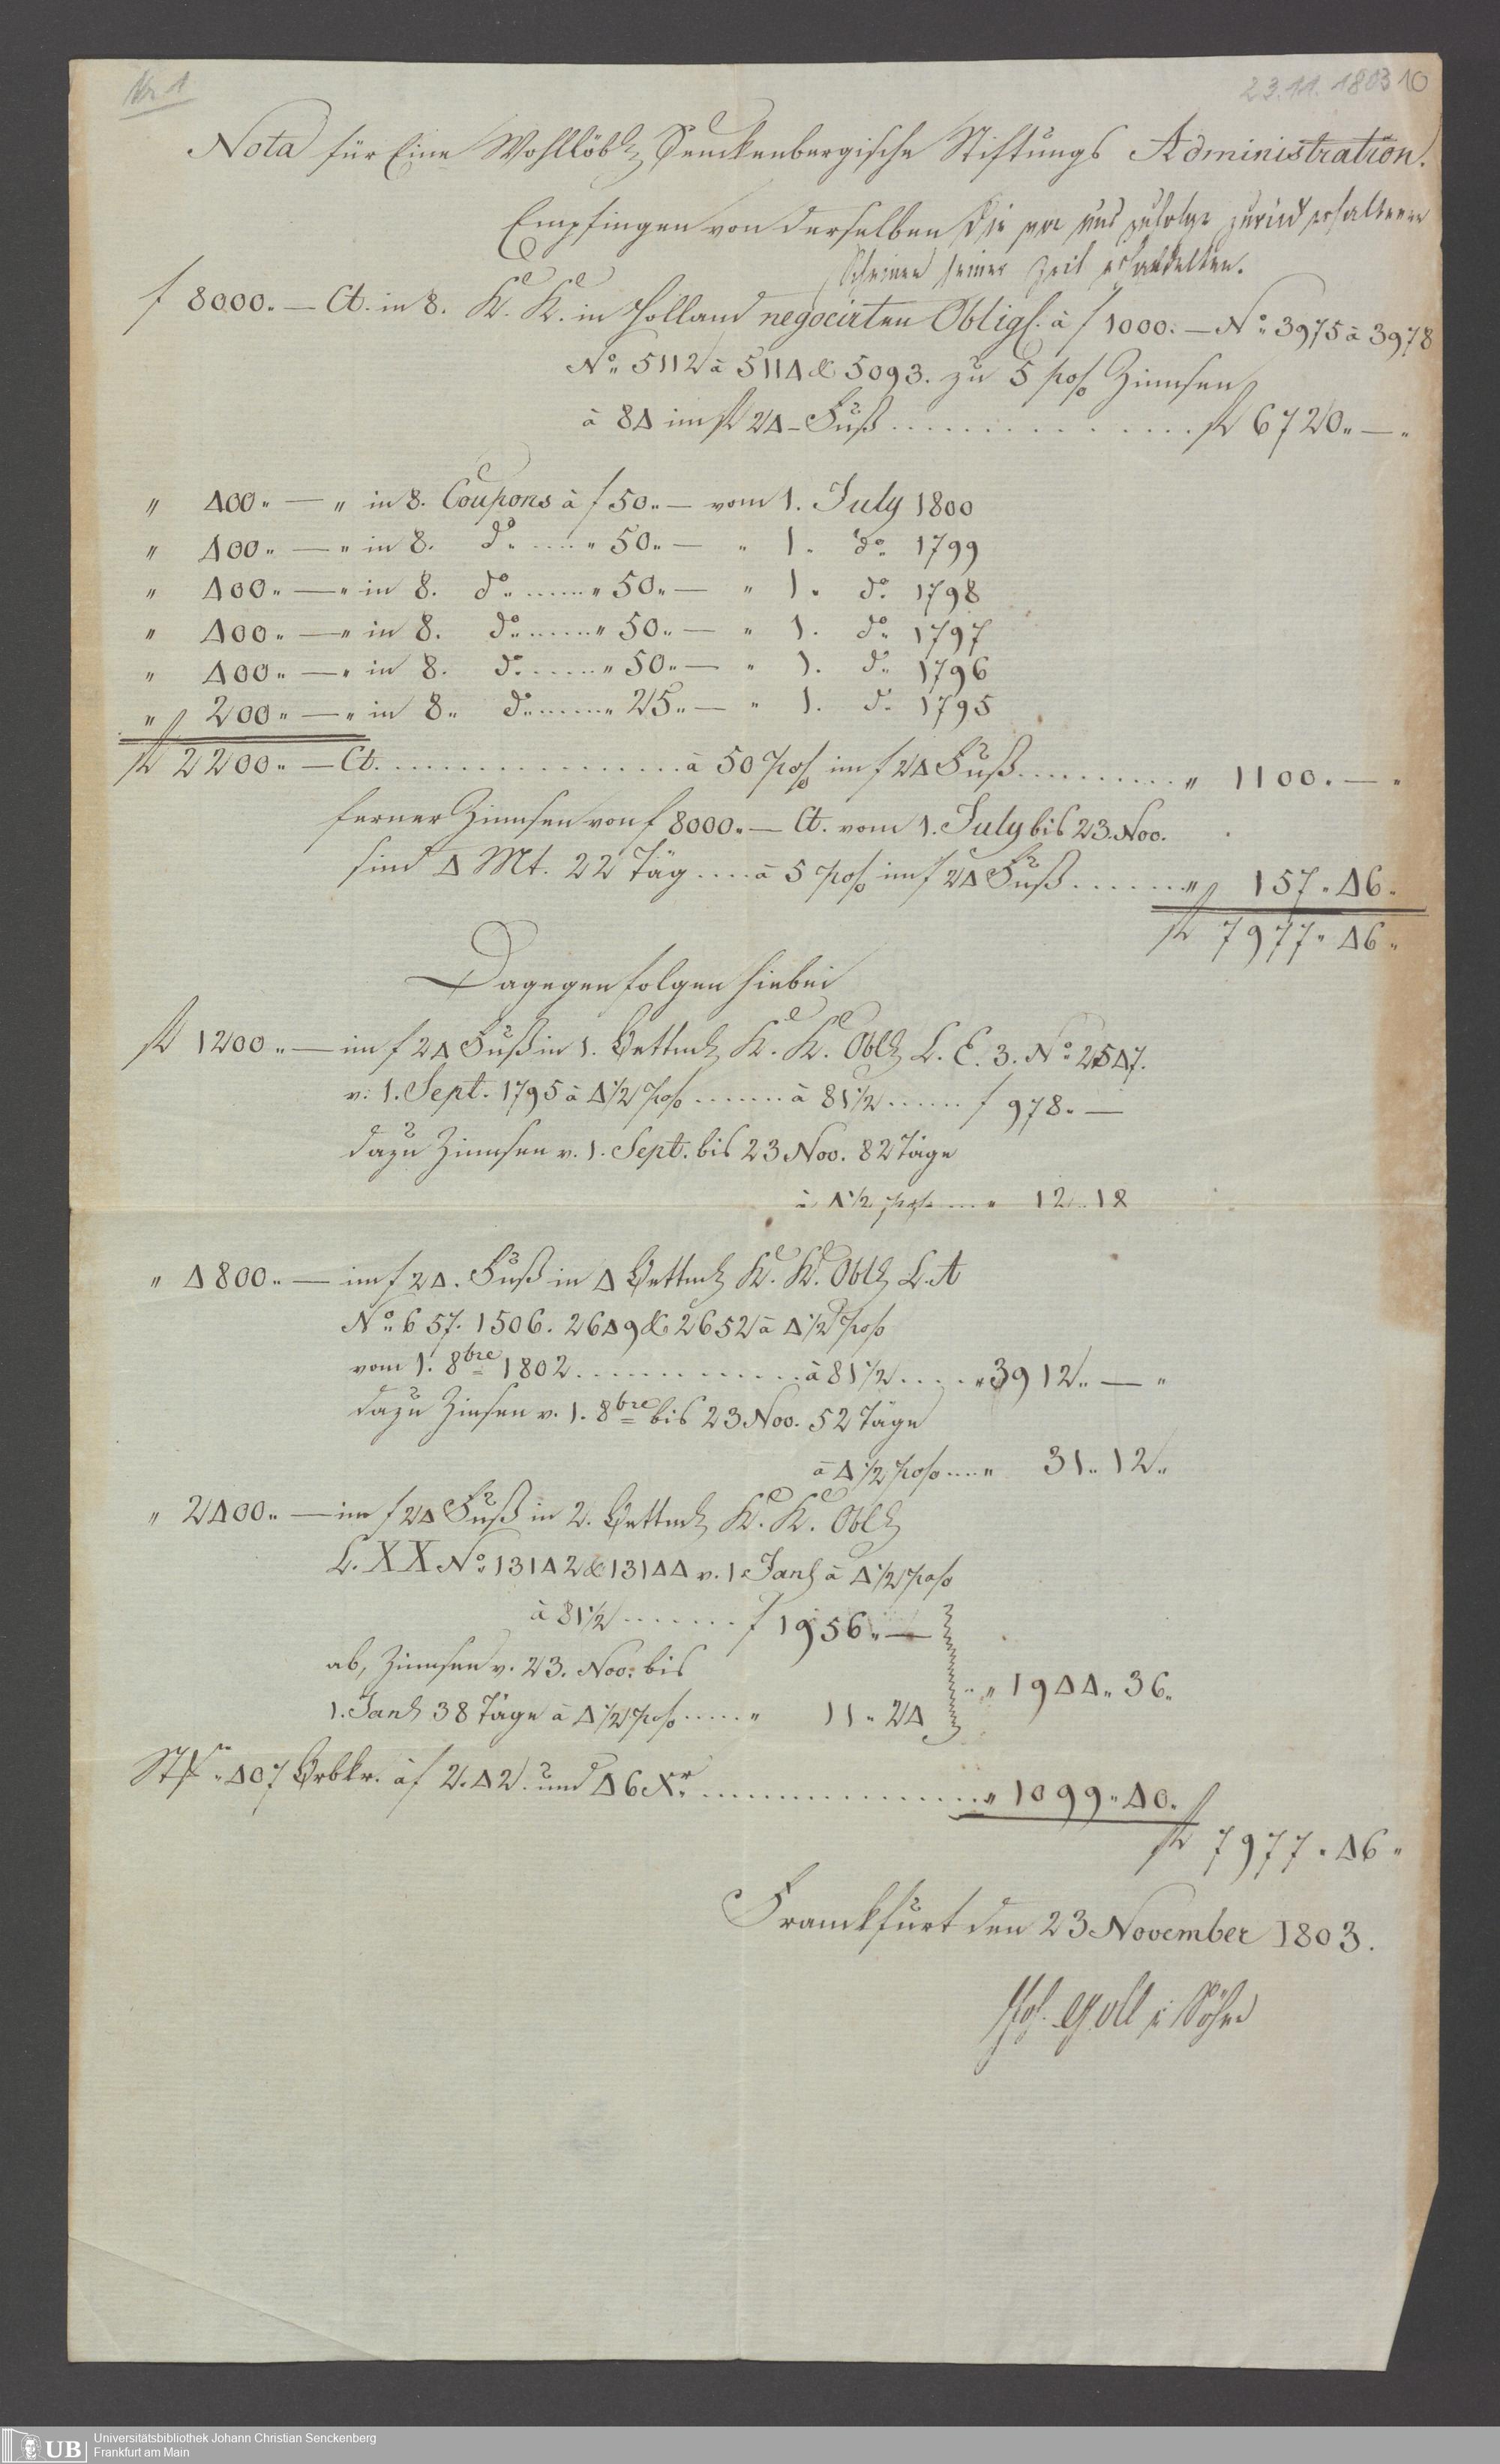 Nr 1
23.11.1803 10
Nota für Eine Wohllöbl. Senckenbergische Stiftungs Administration.
Empfingen von derselben die von uns zufolge zurück erhaltenen
Scheinen seiner Zeit erhandelten.
f 8000.. — Ct. in 8. K. K. in Holland negocirten Obligt. à f 1000. — No. 3975 à 3978
No. 5112 à 5114 & 5093. zu 5 pCt Zinnsen
à 84 im f 24 - Fuß .............. f 6720.. — ..
" 400.. — " in 8. Coupons à f 50.. — vom 1. July 1800
" 400.. — " in 8. do. ..... " 50.. — " 1. do. 1799
" 400.. — " in 8. do. ..... " 50.. — " 1. do. 1798
" 400.. — " in 8. do. ..... " 50.. — " 1. do. 1797
" 400.. — " in 8. do. ..... " 50.. — " 1. do. 1796
" 200.. — " in 8.. do. ..... " 25.. — " 1. do. 1795
f 2200.. — Ct. .............. à 50 pCt im f 24 Fuß .......... " 1100. — "
ferner Zinnsen von f 8000.. — Ct. vom 1. July bis 23. Nov.
sind 4 Mt. 22 Täg .... à 5 pCt im f 24 Fuß ....... " 157. 46.
f 7977.. 46..
Dagegen folgen hiebei
f 1200.. — im f 24 Fuß in 1. Bettm. K. K. Obl. L. E. 3. No. 2547.
v. 1. Sept. 1795 à 4 1/2 pCt ....... à 81 1/2 ...... f 978.. —
dazu Zinnsen v. 1. Sept. bis 23 Nov. 82 Täge
à 4 1/2 pCt .... " 12.. 18
" 4800.. — im f 24. Fuß in 4 Bettm. K. K. Obl. L. A
No. 657. 1506. 2649 & 2652 à 4 1/2 pCt
vom 1. 8bre 1802 ............ à 81 1/2 ..... " 3912.. — "
dazu Zinsen v. 1. 8bre bis 23 Nov. 52 Täge
à 4 1/2 pCt .... " 31.. 12..
" 2400.. — im f 24 Fuß in 2. Bettm. K. K. Obl.
L. XX No. 13142 & 13144 v. 1. Jan. à 4 1/2 pCt
à 81 1/2 ........ f 1956.. —
ab, Zinnsen v. 23. Nov. bis
.. " 1944.. 36..
1. Jan. 38 Täge à 4 1/2 pCt ..... " 11.. 24
St. 407 Brbkr. à f 2. 42. und 46 Xr. ................ " 1099.. 40.
f 7977. 46 "
Franckfurt den 23 November 1803.
Joh. Goll & Söhne
UB Universitätsbibliothek Johann Christian Senckenberg
Frankfurt am Main